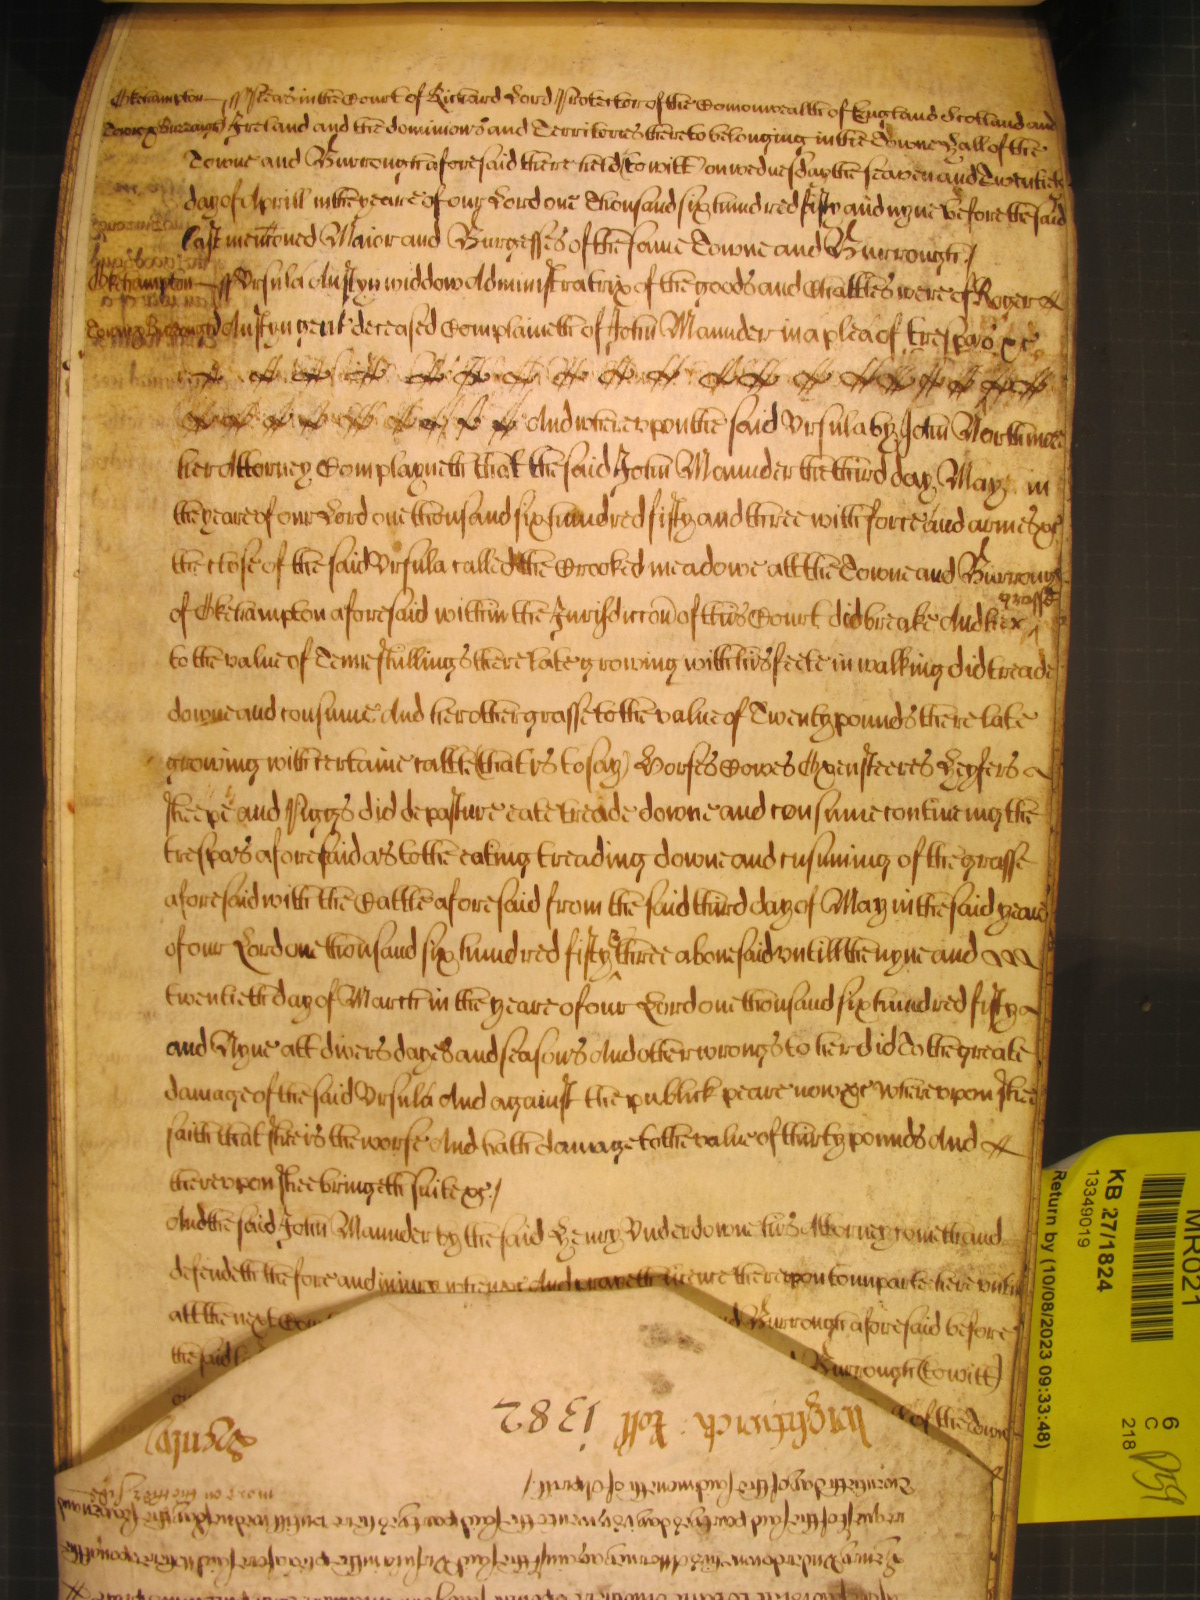 Okehampton ss Pleas in the Court of Richard Lord Protector of the Comonwealth of England Scotland and
Towne & Burrough Ireland and the dominions and Territories thereto belonging in the Towne Hall of the
Towne and Burrough aforesaid there held (to witt) on wednesday the seaven and Twentieth
day of Aprill in the yeare of our Lord one Thousand six hundred fifty and nyne before the said
last mentoned Maior and Burgesses of the same Towne and Burrough /
Okehampton ss Ursula Austyn widdow Administratrix of the goods and Chattles were of Roger
Towne & Burrough Austyn gent deceased Complaineth of John Maunder in a plea of trespass &c
And whereupon the said Ursula by John Northmore
her Attorney Complayneth that the said John Maunder the third day May in
the yeare of our Lord one thousand six hundred fifty and three with force and armes &c
the close of the said Ursula called the Crooked meadowe att the Towne and Burrough
of Okehampton aforesaid within the Jurisdiccon of this Court did breake And her grasse
to the value of Tenne shillings there late growing with his feete in walking did treade
downe and consume And her other grasse to the value of Twenty pounds there late
growing with certaine cattle (that is to say) Horses Cowes Oxen steeres Heyfers
sheepe and Piggs did depasture eate treade downe and consume continueing the
trespas aforesaid as to the eating treading downe and cnsuming of the grasse
aforesaid with the Cattle aforesaid from the said third day of May in the said yeare
of our Lord one thousand six hundred fifty & three abovesaid untill the nyne and
twentieth day of March in the yeare of our Lord one thousand six hundred fifty
and Nyne att divers dayes and seasons And other wrongs to her did To the greate
damage of the said Ursula And against the publick peace now &c whereupon shee
saith that shee is the worse And hath damage to the value of thirty pounds And
thereupon shee bringeth suite &c /
And the said John Maunder by the said Henry Underdowne his Attorney cometh and
defendeth the force and injury when &c And prayeth licence thereupon to imparle here until
att the next Cou
Burrough aforesaid before
the said
Burrough (to witt)
of the Towne
Brightwich roll 1382
Henley
Twentieth day of the said moneth of Aprill /
KB 27/1824
13349019
Return by (10/08/2023 09:33:48)
MR021
6
C
218
D59